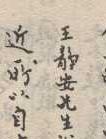 王静安先生
近所以自